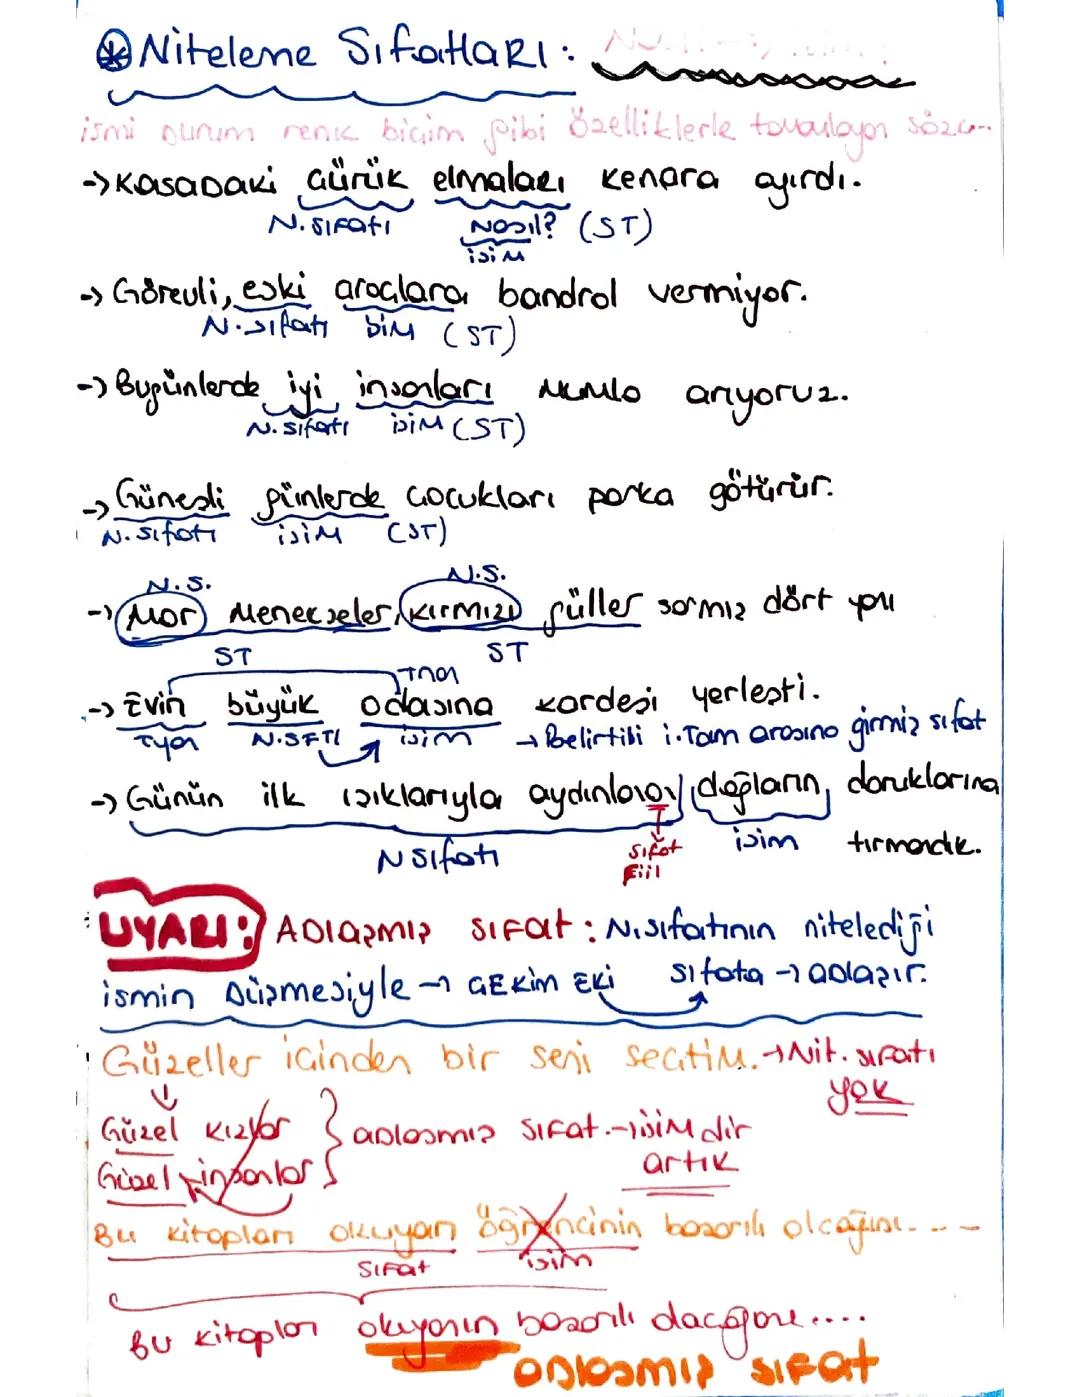 Niteleme Sıfatları:
ismi durum renk biçim gibi özelliklerle tamamlayan sözc...
-> Kasadaki çürük elmaları kenara ayırdı.
N. sıfatı Nasıl? (ST)
isim
-> Görevli, eski araçlara bandrol vermiyor.
N. sıfatı isim (ST)
-> Bugünlerde iyi insanları mumla arıyoruz.
N. sıfatı isim (ST)
-> Güneşli günlerde çocukları parka götürür.
N. sıfatı isim (ST)
N.S. N.S.
-> Mor menekşeler, kırmızı güller sarmış dört yanı
ST ST
Tnan
-> Evin büyük odasına kardeşi yerleşti.
Tyan N.SFTI isim -> Belirtili i. Tam arasına girmiş sıfat
-> Günün ilk ışıklarıyla aydınlanan dağların doruklarına
N sıfatı sıfat isim tırmandık.
Fiil
UYARI: Adlaşmış sıfat: N. sıfatının nitelediği
ismin düşmesiyle -> çekim eki sıfata -> adlaşır.
Güzeller içinden bir seni seçtim. -> Nit. sıfatı
yok
Güzel kızlar } adlaşmış sıfat. -> isimdir
Güzel insanlar } artık
Bu kitapları okuyan öğrencinin başarılı olcağını....
sıfat isim
Bu kitapları okuyanın başarılı olacağını....
adlaşmış sıfat